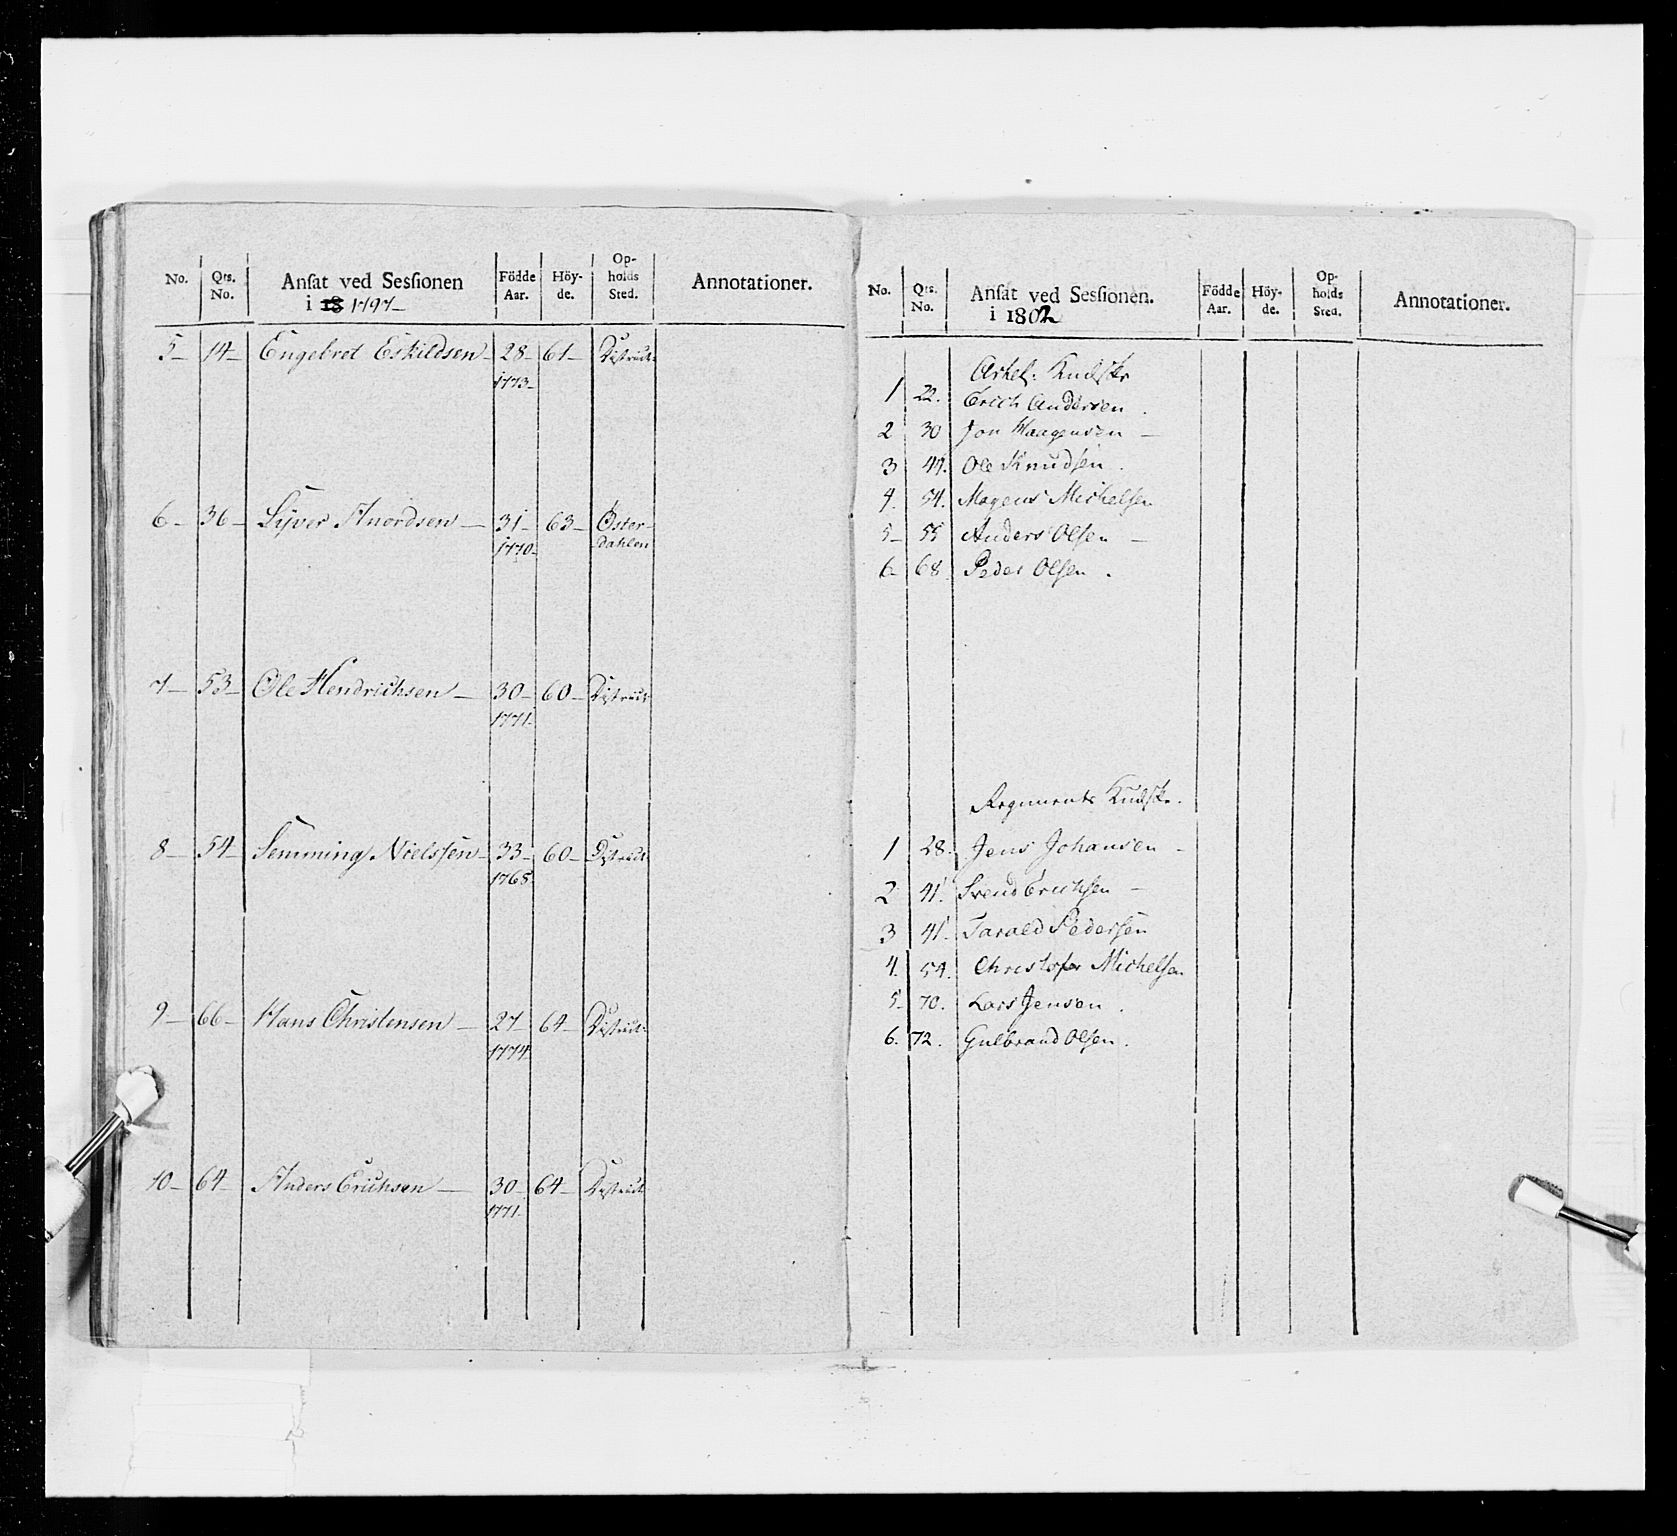 No. Qts. No. Ansat ved Sessionen i 18 1797 Födde Aar. Höy- de. Op- holds Sted. Annotationer.
5 14 Engebret Eskildsen 28 61 District
1773
6 36 Siver Knordsen 31 63 Öster-
1770 dahlen
7 53 Ole Hendrichsen 30 60 District
1771
8 54 Semming Nielssen 33 60 District
1768
9 66 Hans Christensen 27 64 District
1774
10 64 Anders Erichsen 30 64 District
1771
No. Qts. No. Ansat ved Sessionen. i 1802 Födde Aar. Höy- de. Op- holds Sted. Annotationer.
Kudske
1 22. Erich Andersen.
2 30 Jon Haagensen
3 Ole Knudsen.
4. 54. Mogens Michelsen
5 55 Anders Olsen
6 68 Peder Olsen.
Regiments Kudske.
1 28. Jens Johansen
2 41. Svend Erichsen
3 41 Tarald Pedersen
4. 54. Christofer Michelsen
5 70. Lars Jensen.
6. 72. Gulbrand Olsen.